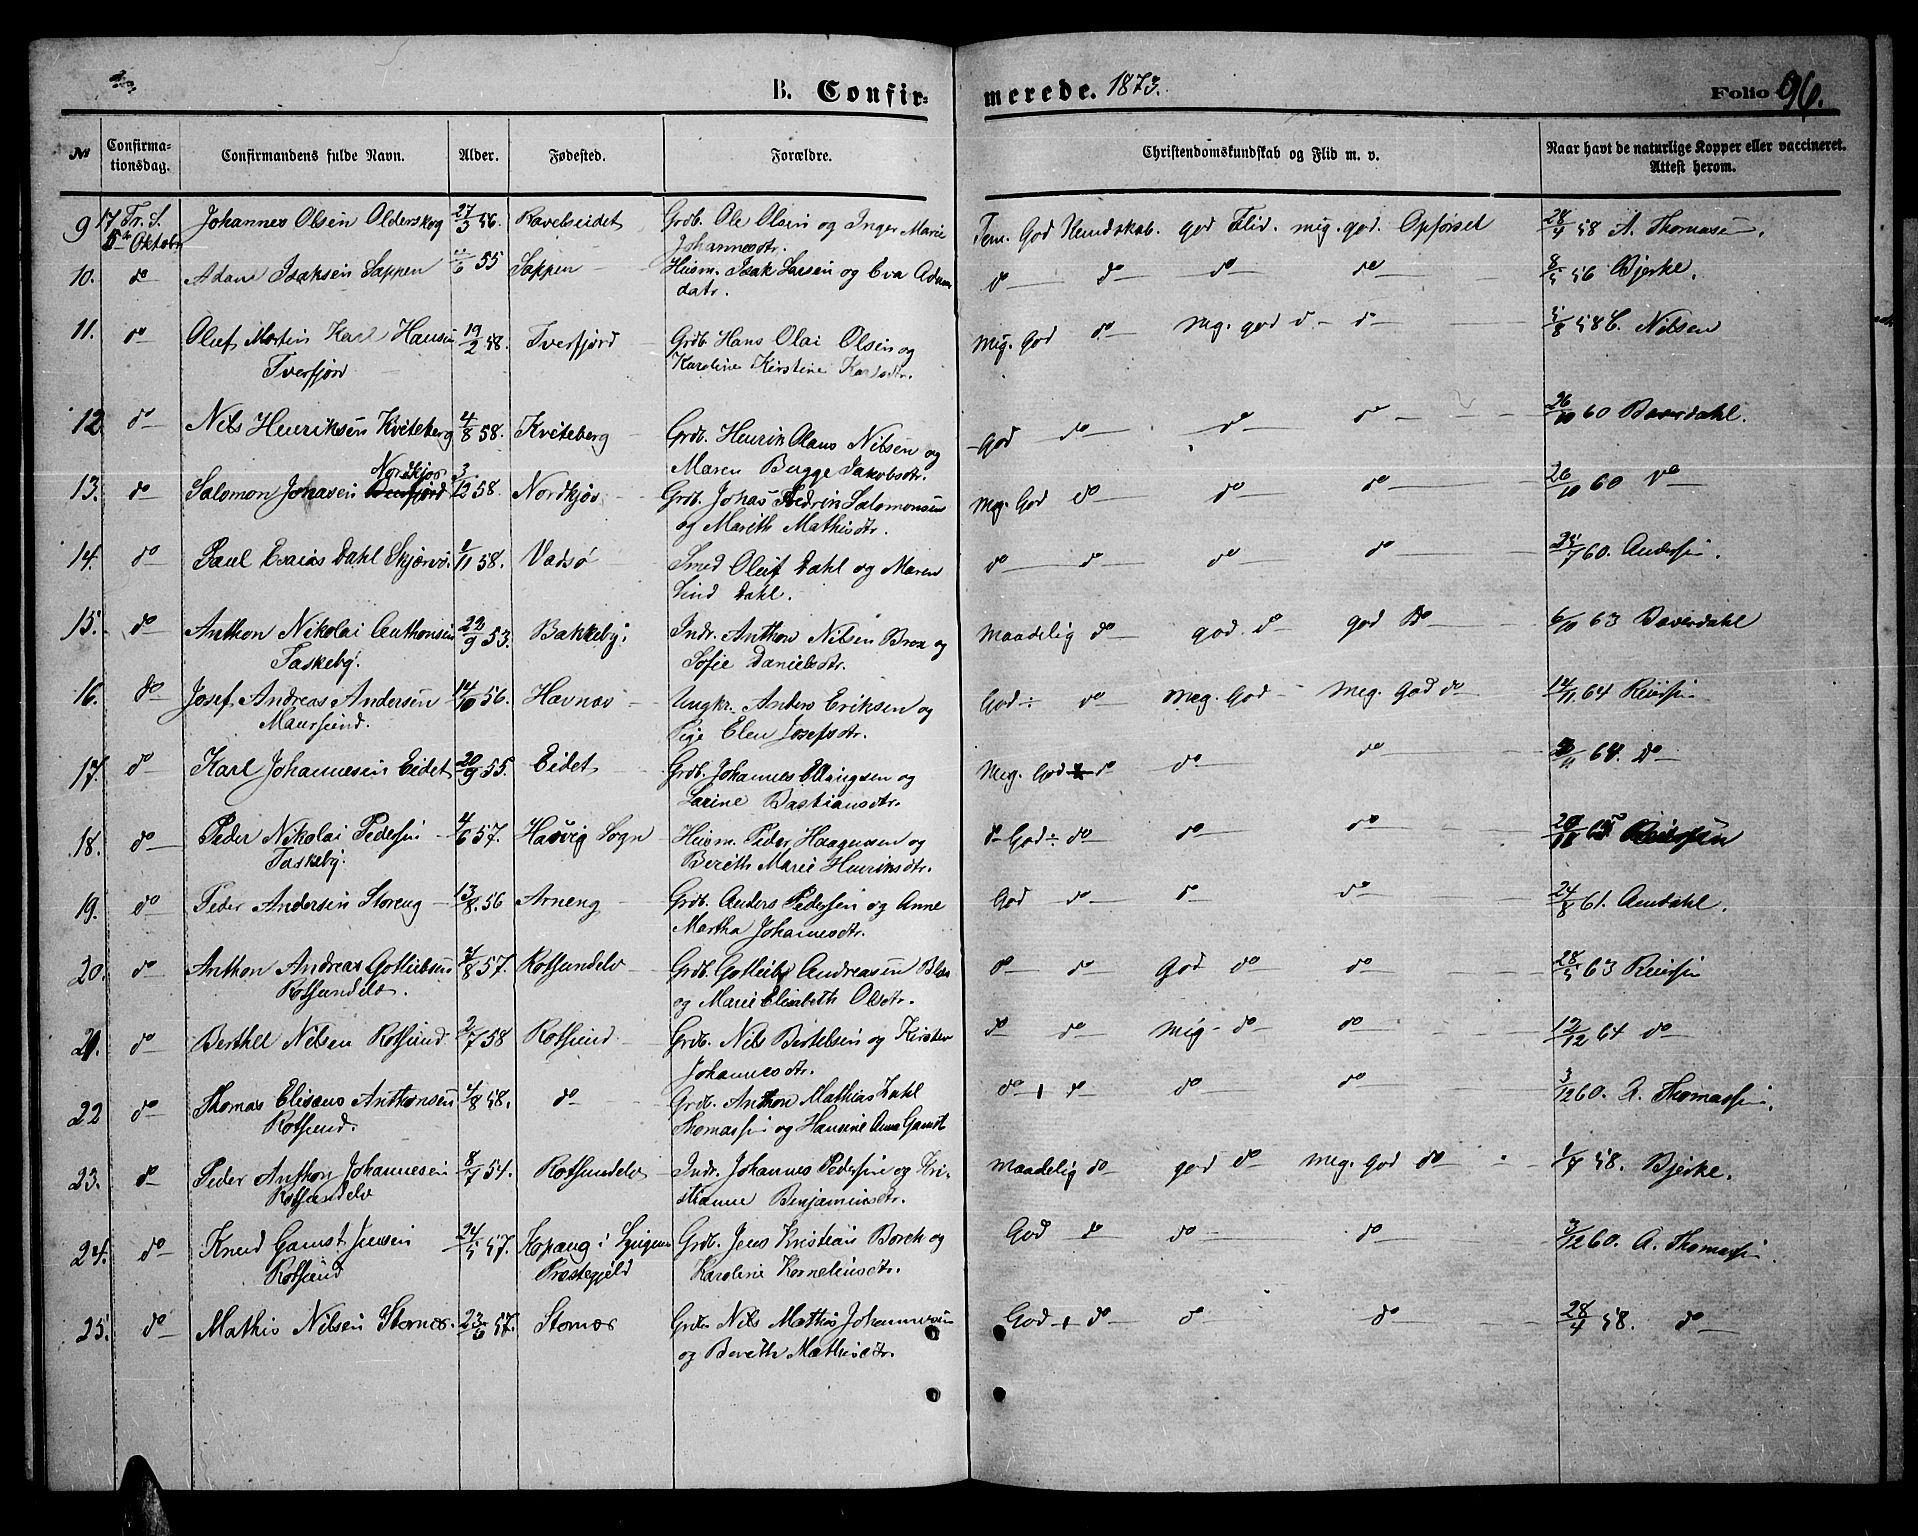 B. Confirmerede. 1873. Folio 96.
№ Confirmationsdag. Confirmandens fulde Navn. Alder. Fødested. Forældre. Christendomskundskab og Flid m. v. Naar havt de naturlige Kopper eller vaccineret. Attest herom.
9 17 Tr. S. Johannes Olsen Olderskog 27/3 56. Ravelseidet Grdb. Ole Olsen og Inger Marie Tem. God Kundskab. god Flid. mig. god. Opførsel 28/4 58 A. Thomasen.
5te Oktober Johannesdtr.
10. do Adam Isaksen Sappen 55 Sappen Husm. Isak Larsen og Eva Adam do do do do 56 Bjerke.
datr.
11. do Oluf Martin Karl Hansen 19/2 58. Tverfjord Grdb. Hans Olai Olsen og Mig. God do Mg. god do do 58 Nilsen
Tverfjord Karoline Kirstine Karlsdtr.
12. do Nils Henriksen Kviteberg 4/8 58. Kviteberg Grdb. Henrik Olaus Nilsen og God do do do 26/10 60 Baverdahl.
Maren Bugge Jakobsdtr.
Nordkjos
13. do Salomon Johasen 3/12 58. Nordkjos Grdb. Johas Fredrik Salomonsen Mg. God do do do 26/10 60 do
og Marith Mathisdtr.
14. do Paul Esaias Dahl Skjervø. 1/11 58. Vadsø Smed Oluf Dahl og Maren do do do do 60. Andersen.
Lind Dahl.
15. do Anthon Nikolai Anthonsen 22/9 53. Bakkeby. Indr. Anthon Nilsen Brox og Maadelig do god do god do 6/10 63 Baverdahl
Taskeby. Sofie Danielsdtr.
16. do Josef Andreas Andersen 14/10 56. Havnæs Ungkr. Anders Eriksen og God do Meg. God Meg. God do 14/11 64 Reiersen
Maursund. Pige Elen Josefsdtr.
17. do Karl Johannesen Eidet 20/9 55. Eidet Grdb. Johannes Ellingsen og Meg. God do do do 64. do
Larine Bastiansdtr.
18. do Peder Nikolai Pedersen 4/6 57. Hasvig Sogn Husm. Peder Haagensen og do God do do do Reiersen
Taskeby. Bereth Marie Henriksdtr.
19. do Peder Andersen Storeng 13/8 56 Arneng Grdb. Anders Pedersen og Anne God do do do 24/8 61. Aemdahl.
Martha Johannesdtr.
20. do Anthon Andreas Gotliebsen 57. Rotsundelv Grdb. Gotlieb Andreasen do do God do do 28/5 63 Reiersen
Rotsundelv. og Marie Elisabeth Olsdtr.
21. do Berthel Nilsen Rotsund. 2/7 58 Rotsund. Grdb. Nils Bertelsen og Kirsten do do Mig do do 12/12 64 do
Johannesdtr.
22 do Thomas Elisæus Anthonsen 4/8 58. do Grdb. Anthon Mathias Dahl do do do do 3/12 60. A. Thomassen.
Rotsund. Thomassen og Hansine Anna Gamst
23. do Peder Anthon Johannesen 8/7 54. Rotsundelv Indr. Johannes Pedersen og Kri- Maadelig do god do Meg. God do 1/7 58. Bjerke.
Rotsundelv stianne Benjaminsdtr.
24. do Knud Gamst Jensen 24/5 57. i Lyngens Grdb. Jens Kristian Borch og God do do do 3/12 60. A. Thomassen.
Rotsund Præstegjeld Karoline Korneliusdtr.
25. do Mathis Nilsen Stornæs. 23/6 57. Stornæs Grdb. Nils Mathis Johannesen God do do do 28/4 58. do
og Bereth Mathisdtr.